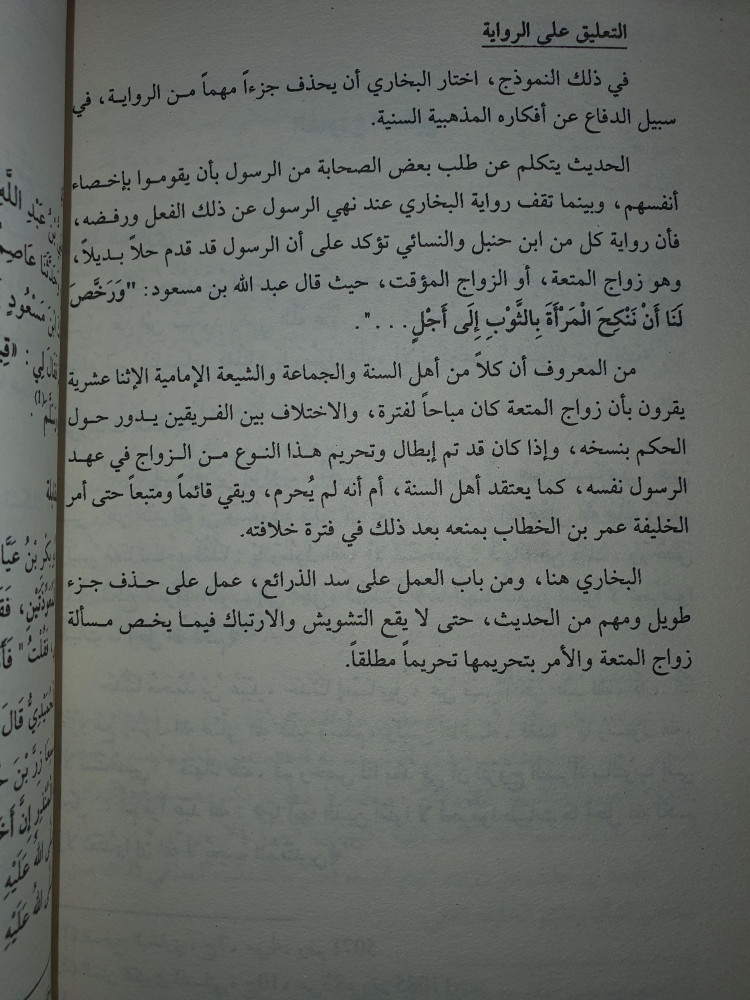 التعليق على الرواية
في ذلك النموذج، اختار البخاري أن يحذف جزءاً مهماً من الرواية، في
سبيل الدفاع عن أفكاره المذهبية السنية.
الحديث يتكلم عن طلب بعض الصحابة من الرسول بأن يقوموا بإخصاء
أنفسهم، وبينما تقف رواية البخاري عند نهي الرسول عن ذلك الفعل ورفضه،
فأن رواية كل من ابن حنبل والنسائي تؤكد على أن الرسول قد قدم حلاً بديلاً،
وهو زواج المتعة، أو الزواج المؤقت، حيث قال عبد الله بن مسعود: "وَرَخَّصَ
لَنَا أَنْ نَنْكِحَ الْمَرْأَةَ بِالثَّوْبِ إِلَى أَجْلٍ...".
من المعروف أن كلاً من أهل السنة والجماعة والشيعة الإمامية الإثنا عشرية
يقرون بأن زواج المتعة كان مباحاً لفترة، والاختلاف بين الفريقين يدور حول
الحكم بنسخه، وإذا كان قد تم إبطال وتحريم هذا النوع من الزواج في عهد
الرسول نفسه، كما يعتقد أهل السنة، أم أنه لم يُحرم، وبقي قائماً ومتبعاً حتى أمر
الخليفة عمر بن الخطاب بمنعه بعد ذلك في فترة خلافته.
البخاري هنا، ومن باب العمل على سد الذرائع، عمل على حذف جزء
طويل ومهم من الحديث، حتى لا يقع التشويش والارتباك فيما يخص مسألة
زواج المتعة والأمر بتحريمها تحريماً مطلقاً.